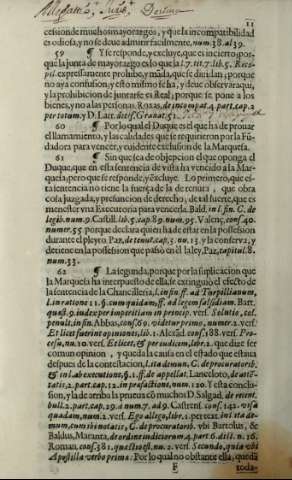 11
cesion de muchos mayorazgos, y que la incompatibilidad
es odiosa, y no se deue admitir facilmente, num. 38. al 39.
59 ¶ Y se responde, y excluye, que es incierto; por-
que la junta de mayorazgo es lo que la l. 7. tit. 7. lib. 5. Reco-
pil. expressamente prohibe, y mãda, que se diuidan; porque
no aya confusion, y esto mismo se ha, y deue observar aqui,
y la prohibicion de juntarse es Real; porque se pone a los
bienes, y no a las personas. Roxas, de incompat. 4. part. cap. 2
per totum, y D. Larr. decis. Granat. 51.
60 ¶ Por lo qual el Duque es el que ha de prouar
el llamamiento, y las calidades que se requirieron por la Fũ-
dadora para vencer, y euidente exclusion de la Marquesa.
61 ¶ Sin que sea de objecion el que oponga el
Duque, que en esta sentencia de vista ha vencido a la Mar-
quesa, pero que se responde, y excluye. Lo primero, que es-
ta sentencia no tiene la fuerça de la de tenuta, que obra
cosa juzgada, y presuncion de derecho, de tal suerte, que es
menester vna Executoria para vencerla. Bald. in l. fin. C. de
legib. num. 9. Castill. lib. 5. cap. 89. num. 95. Valenç. cons. 40.
numer. 55. porque declara quien ha de estar en la possession
durante el pleyto. Paz, de tenut. cap. 5. nu. 13. y la conserva, y
defiende en la possession que passò en el la ley, Paz, capitul. 8.
num. 33.
62 ¶ La segunda, porque por la suplicacion que
la Marquesa ha interpuesto de ella, se extinguiò el efecto de
la sentencia de la Chancilleria, l. in fin. ff. ad Turpillianum,
l. in ratione 11. §. cum quidam, ff. ad legem falcidiam. Bart.
quæst. 9. index per imperitiam in princip. vers. Solutio, col.
penult. in fin. Abbas, cons. 61. videtur primo, numer. 2. vers.
Et licet fuerint opiniones, lib. 1. Alexãd. cons. 188. vers. Pro-
cessu, nu. 10. vers. Et licet, & pro eadem, libr. 2. que dize ser
comun opinion, y queda la causa en el estado que estaua
despues de la contestacion, l. ita demum, C. de procuratorib.
& in l. ab executione, §. 1. ff. de appellat. Lanceloto, de aten-
tatis, 2. part. cap. 12. in præfactione, num. 120. Y esta conclu-
sion, y la de arriba la prueua cõ muchos D. Salgad. de retent.
bull. 2. part. cap. 29. a num. 7. ad 9. Castrens. cons. 142. visa
quadam, num. 2. vers. Ego allego, lib. 1. per tex. in l. ita de-
mum, cum ibi notatis, C. de procuratorib. vbi Bartolus, &
Baldus, Maranta, de ordine iudiciorum 4. part. 6. dist. n. 16.
Roman. cons. 381. quæstio est, nu. 2. vers. Secundo, quia vbi
Apostilla verbo primo. Por lo qual no obstante ella, queda
F toda-